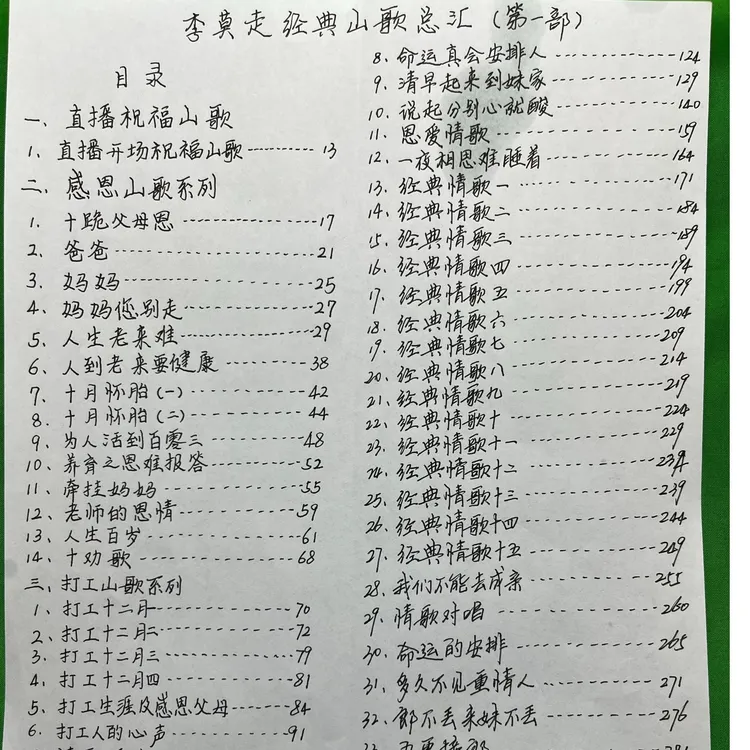 李莫走经典山歌总汇（第一部）
目录
一、直播祝福山歌
1、直播开场祝福山歌----------13
二、感恩山歌系列
1、十跪父母恩----------17
2、爸爸----------21
3、妈妈----------25
4、妈妈您别走----------27
5、人生老来难----------29
6、人到老来要健康----------38
7、十月怀胎(一)----------42
8、十月怀胎(二)----------44
9、为人活到百零三----------48
10、养育之恩难报答----------52
11、牵挂妈妈----------55
12、老师的恩情----------59
13、人生百岁----------61
14、十劝歌----------68
三、打工山歌系列
1、打工十二月一----------70
2、打工十二月二----------72
3、打工十二月三----------79
4、打工十二月四----------81
5、打工生涯及感恩父母----------84
6、打工人的心声----------91
8、命运真会安排人----------124
9、清早起来到妹家----------129
10、说起分别心就酸----------140
11、恩爱情歌----------159
12、一夜相思难睡着----------164
13、经典情歌一----------171
14、经典情歌二----------184
15、经典情歌三----------189
16、经典情歌四----------194
17、经典情歌五----------199
18、经典情歌六----------204
19、经典情歌七----------209
20、经典情歌八----------214
21、经典情歌九----------219
22、经典情歌十----------224
23、经典情歌十一----------229
24、经典情歌十二----------234
25、经典情歌十三----------239
26、经典情歌十四----------244
27、经典情歌十五----------249
28、我们不能去成亲----------255
29、情歌对唱----------260
30、命运的安排----------265
31、多久不见重情人----------271
32、郎不丢来妹不丢----------276